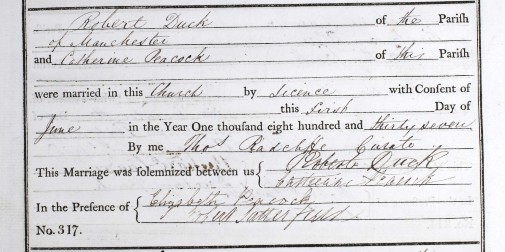 Robert Duck of the Parish
of Manchester
and Catherine Peacock of this Parish
were married in this Church by Licence with Consent of
this First Day of
June in the Year One thousand eight hundred and thirty seven
By me Thos Radcliffe Curate
This Marriage was solemnized between us { Robert Duck
Catherine Peacock
In the Presence of { Elizabeth Peacock
Satterfield
No. 317.